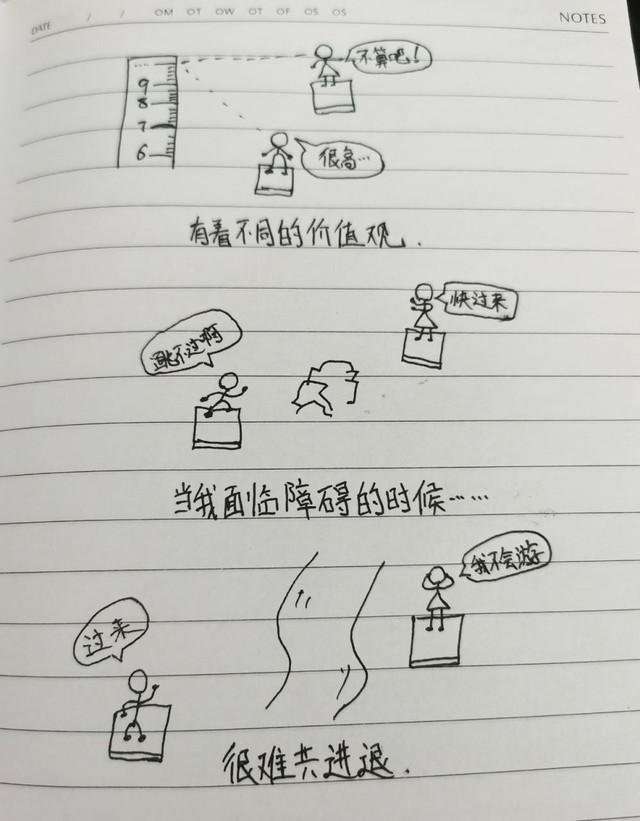 DATE / / OM OT OW OT OF OS OS NOTES
不算吧!
9
8
7
6
很高…
有着不同的价值观.
快过来
跳不过啊
当我面临障碍的时候……
我不会游
过来
很难共进退.